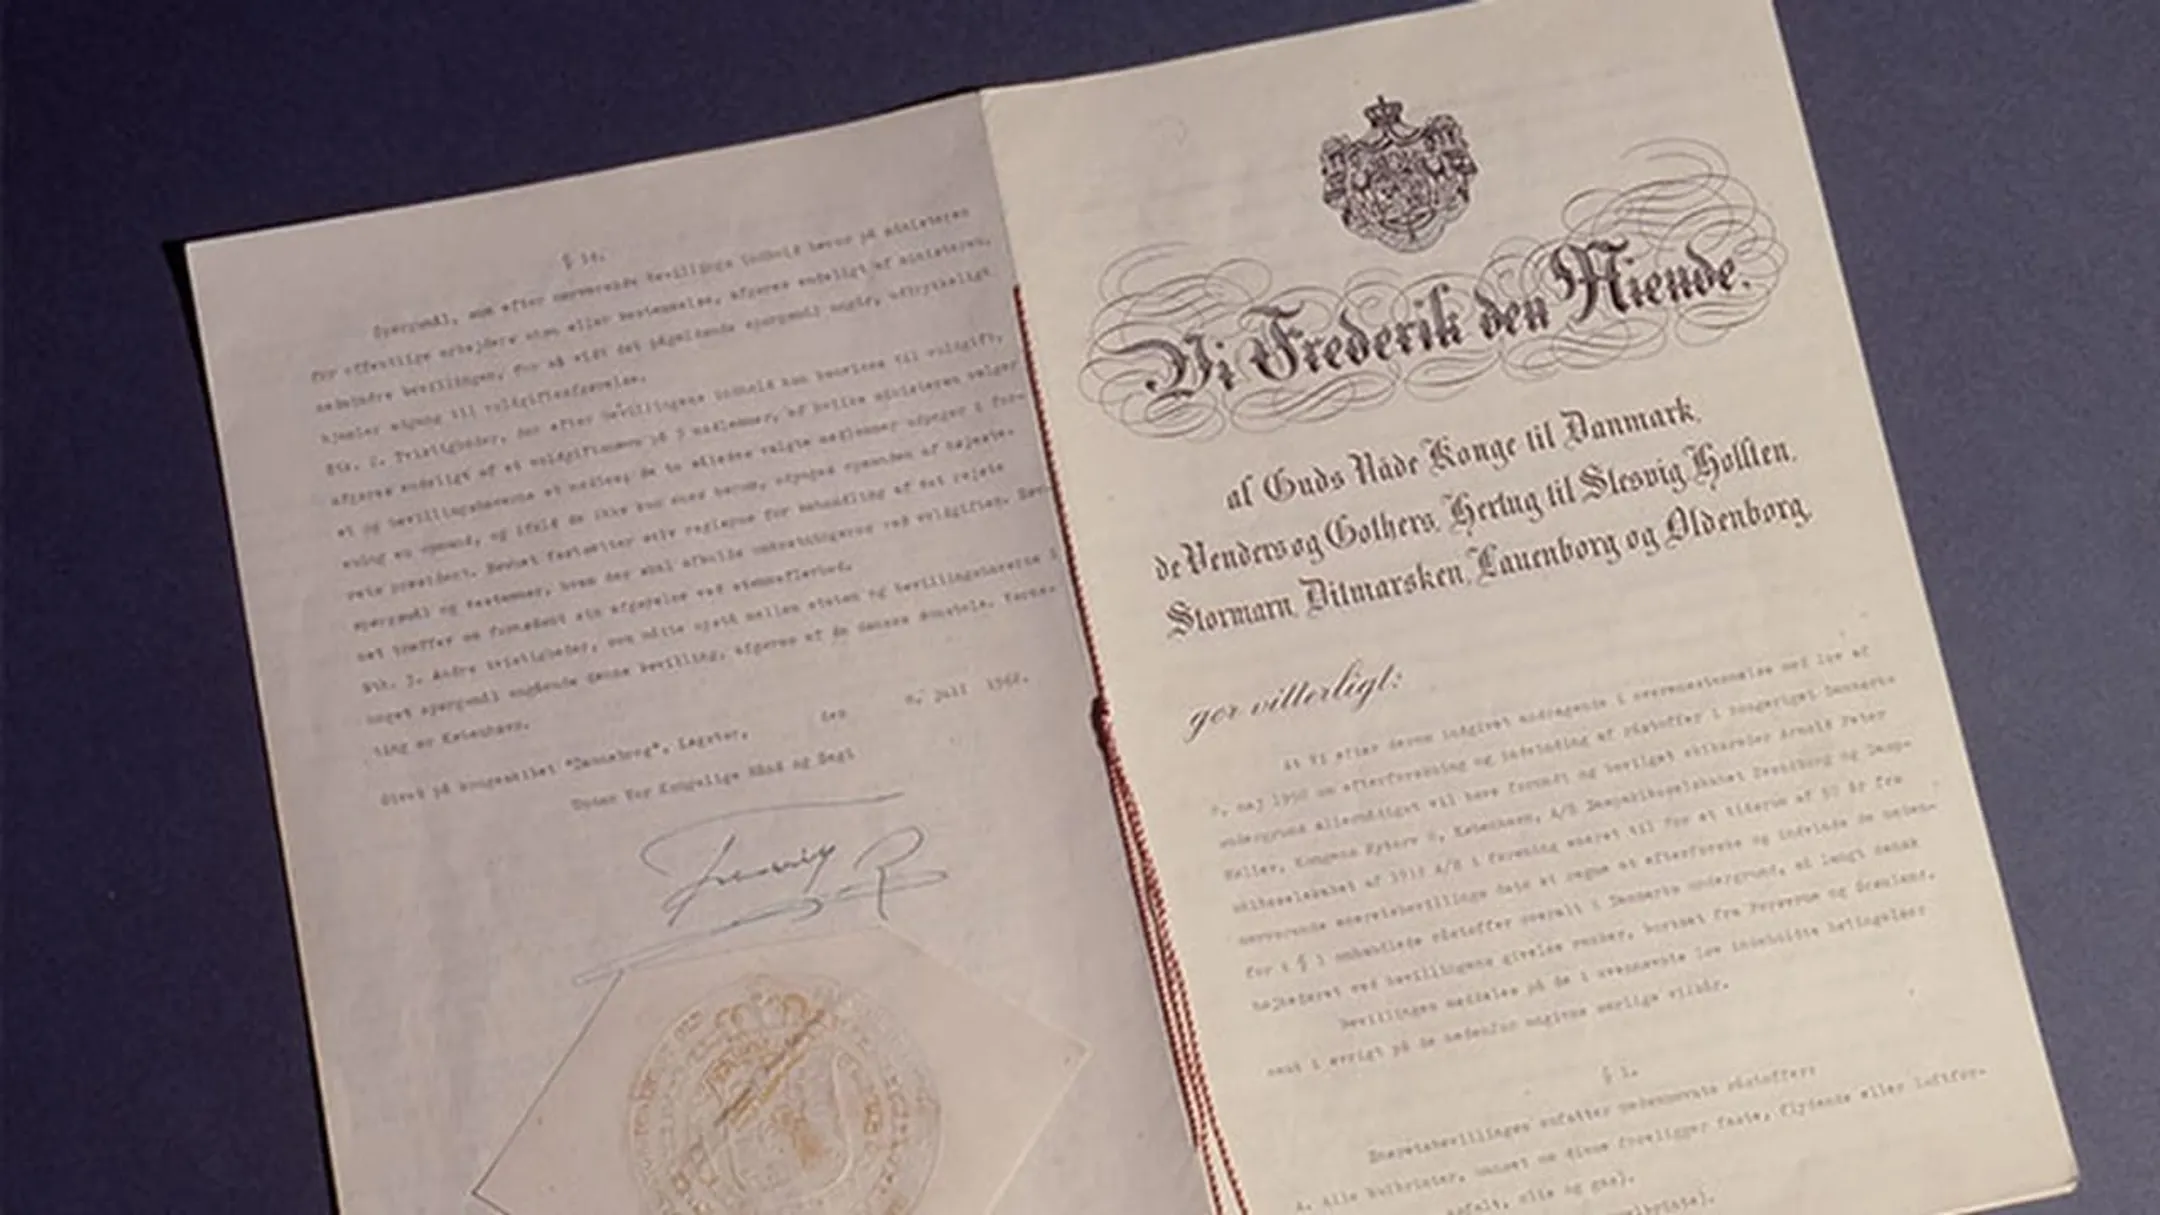 § 14.
Spørgsmål, som efter nærværende bevillings indhold beror på ministeren
for offentlige arbejders skøn eller bestemmelse, afgøres endeligt af ministeren,
bevillingen, for så vidt det pågældende spørgsmål angår, udtrykkeligt
hjemler adgang til voldgiftsafgørelse.
Stk. 2. Tvistigheder, der efter bevillingens indhold kan henvises til voldgift,
afgøres endeligt af et voldgiftsnævn på 3 medlemmer, af hvilke ministeren vælger
et og bevillingshaverne et medlem; de to således valgte medlemmer udpeger i for-
ening en opmand, og ifald de ikke kan enes herom, udpeges opmanden af højeste-
rets præsident. Nævnet fastsætter selv reglerne for behandling af det rejste
spørgsmål og bestemmer, hvem der skal afholde omkostningerne ved voldgiften. Næv-
net træffer om fornødent sin afgørelse ved stemmeflerhed.
Stk. 3. Andre tvistigheder, som måtte opstå mellem staten og bevillingshaverne i
noget spørgsmål angående denne bevilling, afgøres af de danske domstole.
ting er København.
Givet på kongeskibet "Dannebrog", Løgstør, den 8. juli 1962.
Under Vor Kongelige Hånd og Segl
Frederik R
Vi Frederik den Niende,
af Guds Nåde Konge til Danmark,
de Venders og Gothers, Hertug til Slesvig, Holsten,
Stormarn, Ditmarsken, Lauenborg og Oldenborg,
gør vitterligt:
At Vi efter derom indgivet andragende i overensstemmelse med lov af
maj 1950 om efterforskning og indvinding af råstoffer i kongeriget Danmarks
undergrund allernådigst vil have forundt og bevilget skibsreder Arnold Peter
Møller, Kongens Nytorv 8, København, A/S Dampskibsselskabet Svendborg og Damp-
skibsselskabet af 1912 A/S i forening eneret til for et tidsrum af 50 år fra
nærværende eneretsbevillings dato at regne at efterforske og indvinde de neden-
for i § 1 omhandlede råstoffer overalt i Danmarks undergrund, så langt dansk
højhedsret ved bevillingens givelse rækker, bortset fra Færøerne og Grønland.
Bevillingen meddeles på de i ovennævnte lov indeholdte betingelser
samt i øvrigt på de nedenfor angivne særlige vilkår.
§ 1.
Eneretsbevillingen omfatter nedennævnte råstoffer:
A. Alle kulbrinter, uanset om disse foreligger faste, flydende eller luftfor-
asfalt, olie og gas).